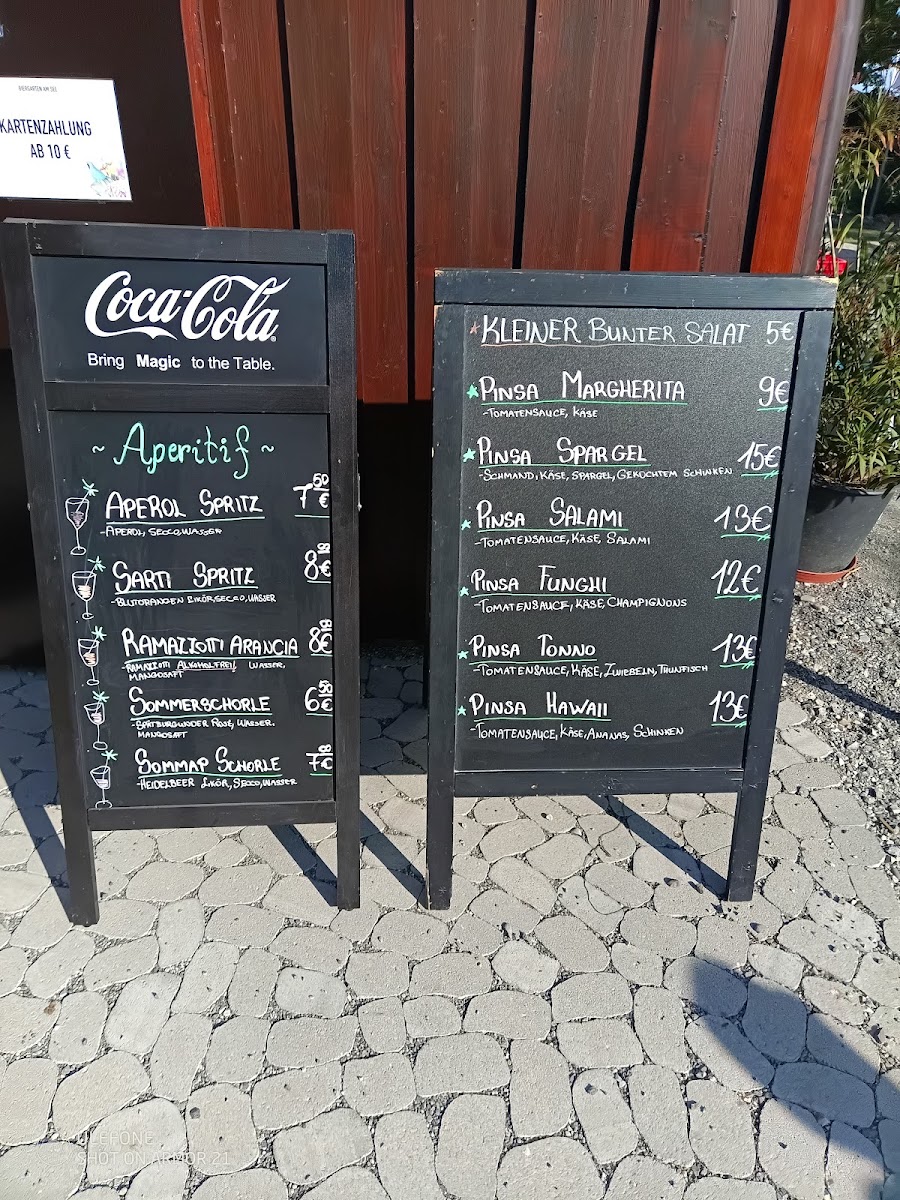 BIERGARTEN AM SEE
KARTENZAHLUNG
AB 10 €
Coca-Cola
Bring Magic to the Table.
~ Aperitif ~
APEROL SPRITZ 750€
-APEROL, SECCO, WASSER
SARTI SPRITZ 8€
-BLUTORANGEN LIKÖR, SECCO, WASSER
RAMAZZOTTI ARANCIA 8€
-RAMAZZOTTI ALKOHOLFREI, WASSER,
MANGOSAFT
SOMMERSCHORLE 650€
-SPÄTBURGUNDER ROSÉ, WASSER.
MANGOSAFT
SOMMAP SCHORLE 7€
-HEIDELBEER LIKÖR, SECCO, WASSER
KLEINER BUNTER SALAT 5€
PINSA MARGHERITA 9€
-TOMATENSAUCE, KÄSE
PINSA SPARGEL 15€
-SCHMAND, KÄSE, SPARGEL, GEKOCHTEM SCHINKEN
PINSA SALAMI 13€
-TOMATENSAUCE, KÄSE, SALAMI
PINSA FUNGHI 12€
-TOMATENSAUCE, KÄSE, CHAMPIGNONS
PINSA TONNO 13€
-TOMATENSAUCE, KÄSE, ZWIEBELN, THUNFISCH
PINSA HAWAII 13€
-TOMATENSAUCE, KÄSE, ANANAS, SCHINKEN
ULEFONE
SHOT ON ARMOR 21